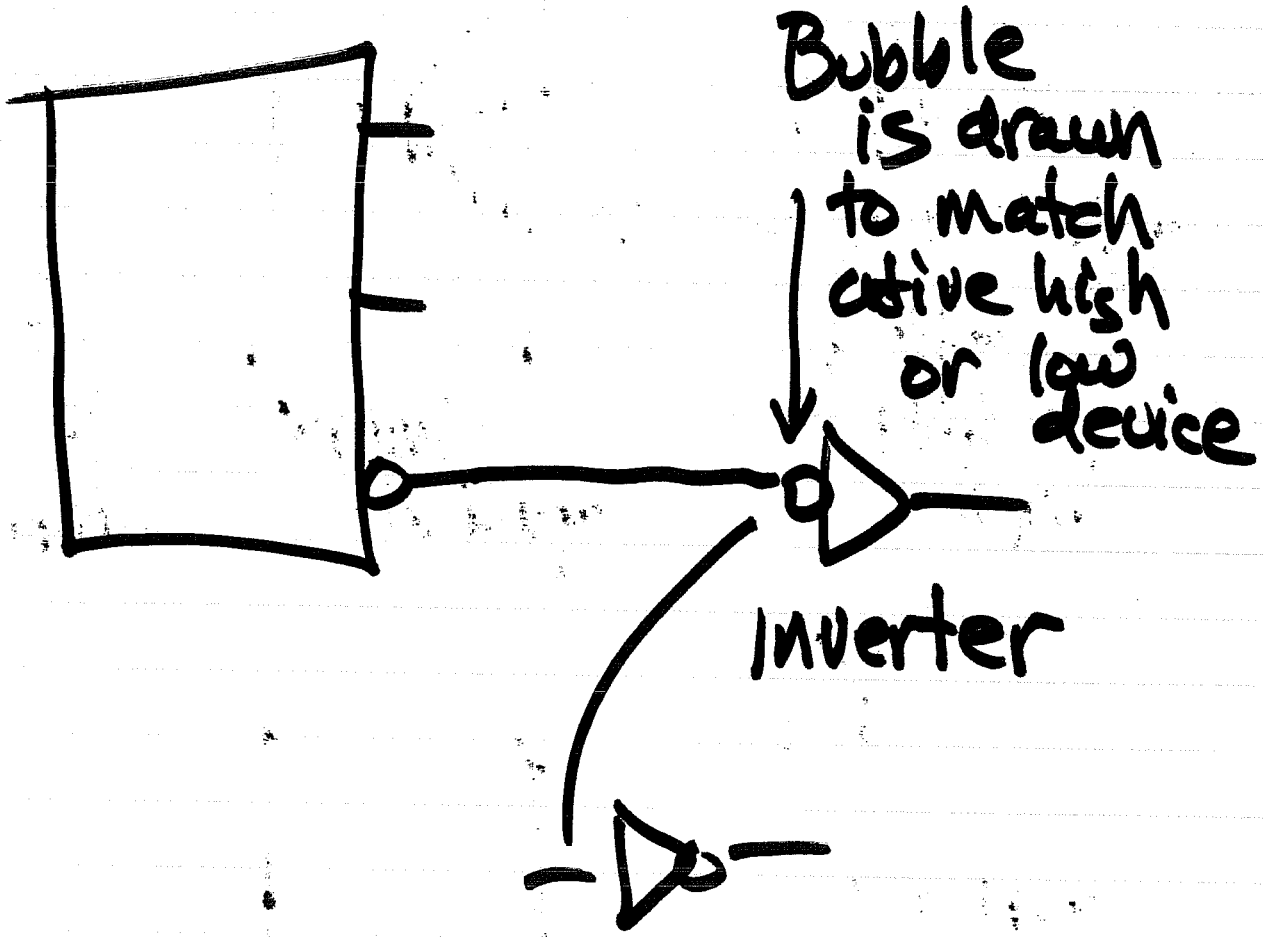 Bubble
is drawn
to match
ative high
or low
device
Inverter